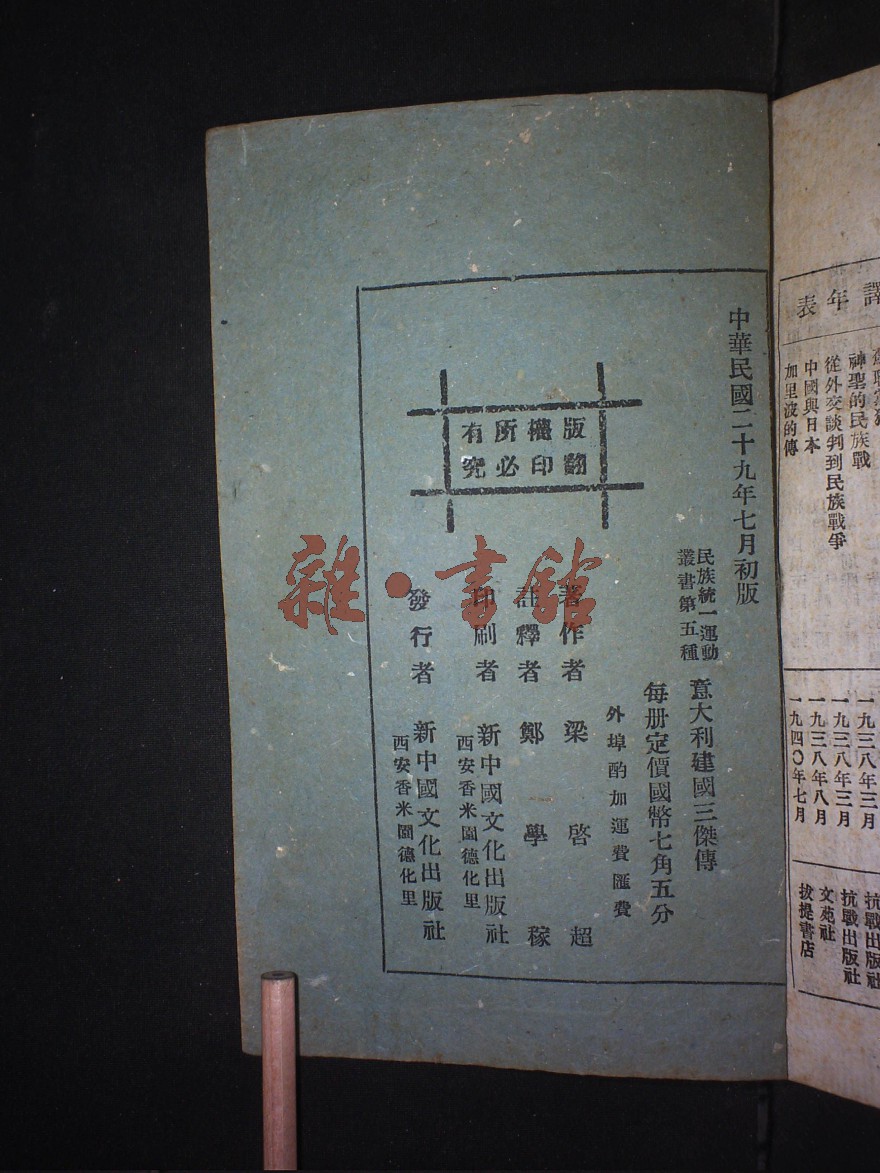 譯年表
神聖的民族戰
從外交談判到民族戰爭
中國與日本
加里波的傳
一九三八年三月
一九三八年三月
一九三八年八月
一九四〇年七月
抗戰出版社
抗戰出版社
文苑社
拔提書店
中華民國二十九年七月初版
民族統一運動
叢書第五種
意大利建國三傑傳
每册定價國幣七角五分
外埠酌加運費匯費
著作者 梁啓超
註釋者 鄭學稼
印刷者 新中國文化出版社
西安香米園德化里
發行者 新中國文化出版社
西安香米園德化里
版權所有
翻印必究
雜·書館